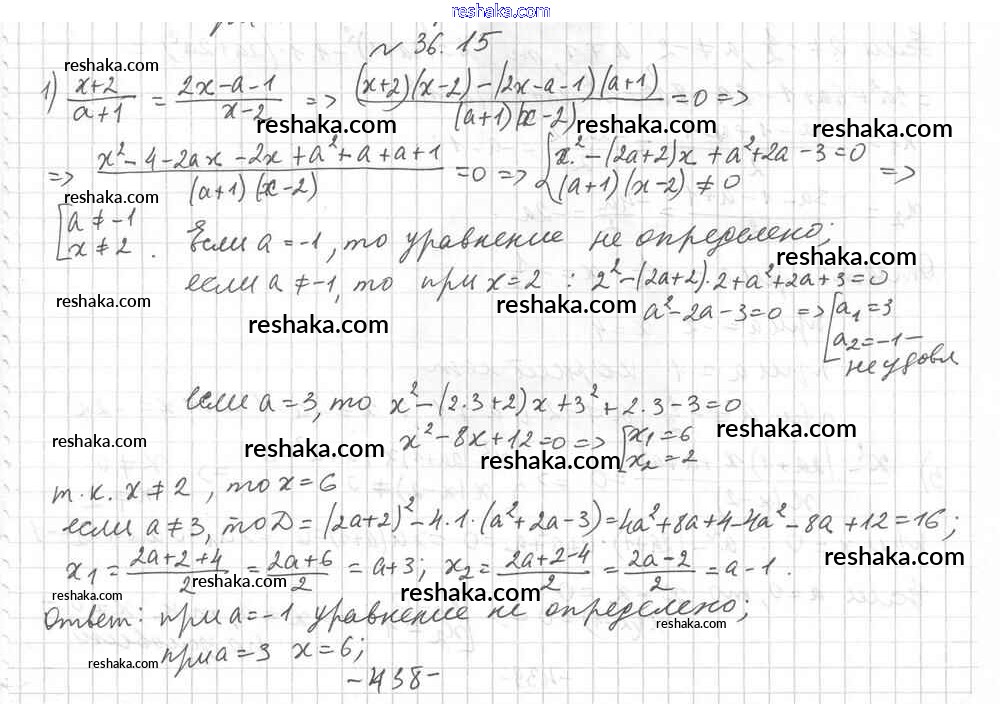 reshaka.com
№ 36.15
1) (x+2)/(a+1) = (2x-a-1)/(x-2) => ((x+2)(x-2)-(2x-a-1)(a+1))/((a+1)(x-2)) = 0 =>
reshaka.com
reshaka.com
reshaka.com
=> (x²-4-2ax-2x+a²+a+a+1)/((a+1)(x-2)) = 0 => { x²-(2a+2)x+a²+2a-3=0 (a+1)(x-2)≠0 =>
reshaka.com
[ a≠-1 x≠2 . Если a=-1, то уравнение не определено;
reshaka.com
если a≠-1, то при x=2 : 2²-(2a+2)·2+a²+2a+3=0
reshaka.com
reshaka.com
reshaka.com
a²-2a-3=0 => [ a₁=3 a₂=-1 – не удовл
если a=3, то x²-(2·3+2)x+3²+2·3-3=0
reshaka.com
reshaka.com
reshaka.com
reshaka.com
x²-8x+12=0 => [ x₁=6 x₂=2
т.к. x≠2, то x=6
если a≠3, то D=(2a+2)²-4·1·(a²+2a-3)=4a²+8a+4-4a²-8a+12=16;
x₁=(2a+2+4)/2=(2a+6)/2=a+3; x₂=(2a+2-4)/2=(2a-2)/2=a-1.
reshaka.com
reshaka.com
reshaka.com
Ответ: при a=-1 уравнение не определено;
reshaka.com
при a=3 x=6;
reshaka.com
-438-